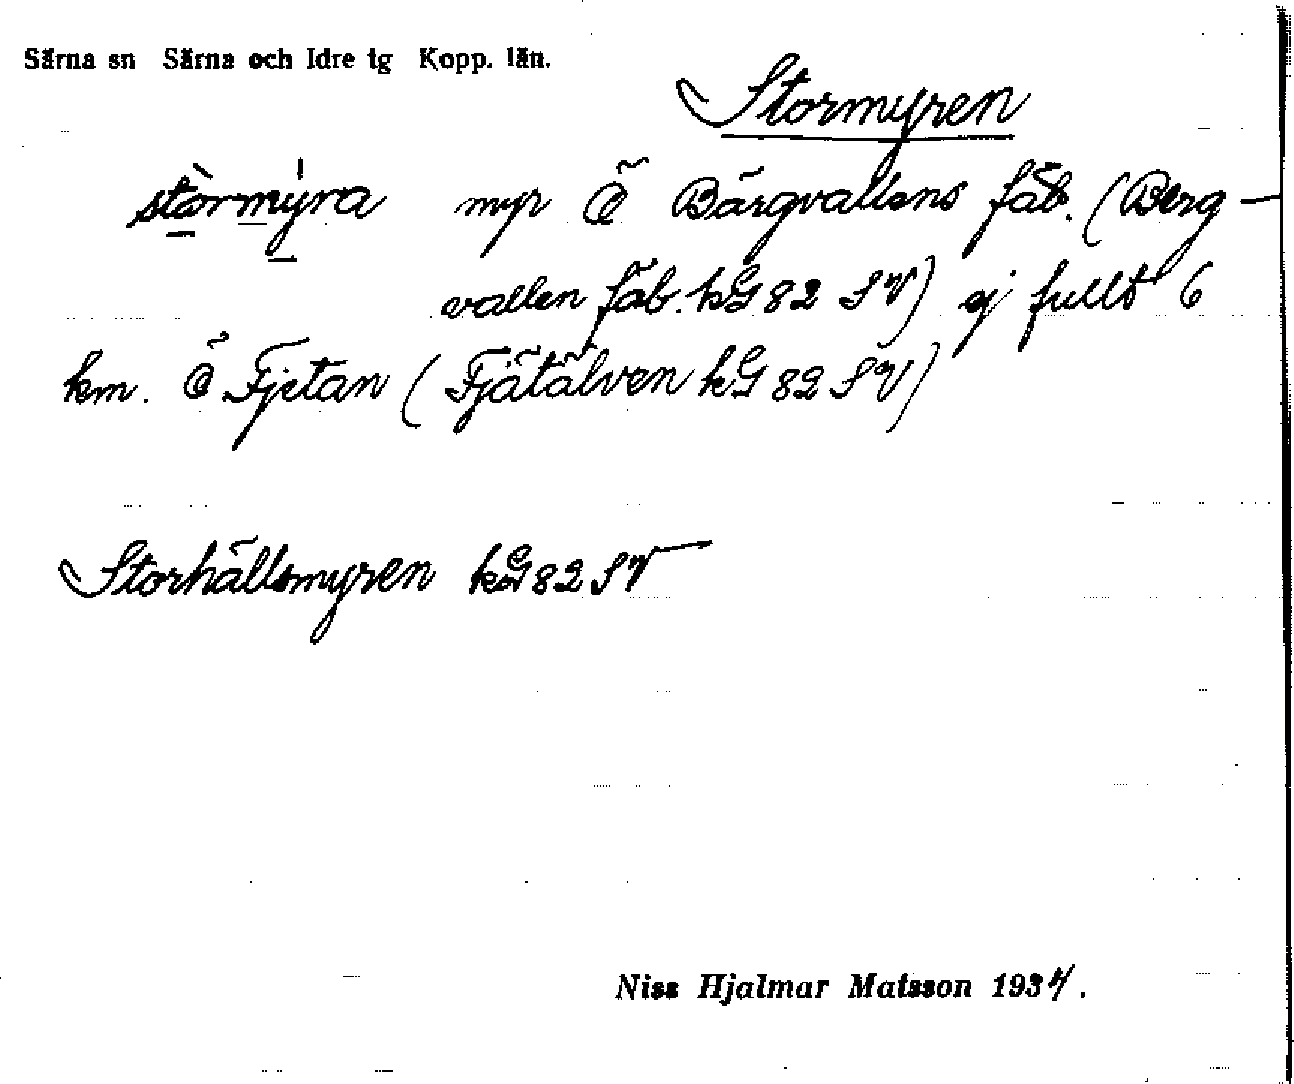 Särna sn Särna och Idre tg Kopp. län.
Stormyren
stòrmýra myr Ö Bärgvallens fäb. (Berg-
vallen fäb. kG 82 SV) ej fullt 6
km. Ö Fjetan (Fjätälven kG 82 SV)
Storhällsmyren kG 82 SV
Niss Hjalmar Matsson 1934.